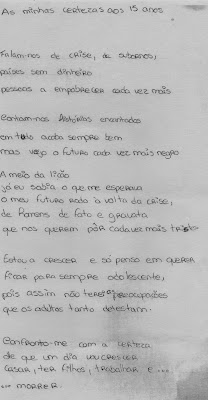 As minhas certezas aos 15 anos
Falam-nos de crise, de subornos,
países sem dinheiro
pessoas a empobrecer cada vez mais
Contam-nos histórias encantadas
em todo acaba sempre bem
mas vejo o futuro cada vez mais negro
A meio da lição
já eu sabia o que me esperava
o meu futuro roda à volta da crise,
de homens de fato e gravata
que nos querem pôr cada vez mais tristes
Estou a crescer e só penso em querer
ficar para sempre adolescente,
pois assim não terei preocupações
que os adultos tanto detestam.
Confronto-me com a certeza
de que um dia vou crescer
casar, ter filhos, trabalhar e ...
... morrer.